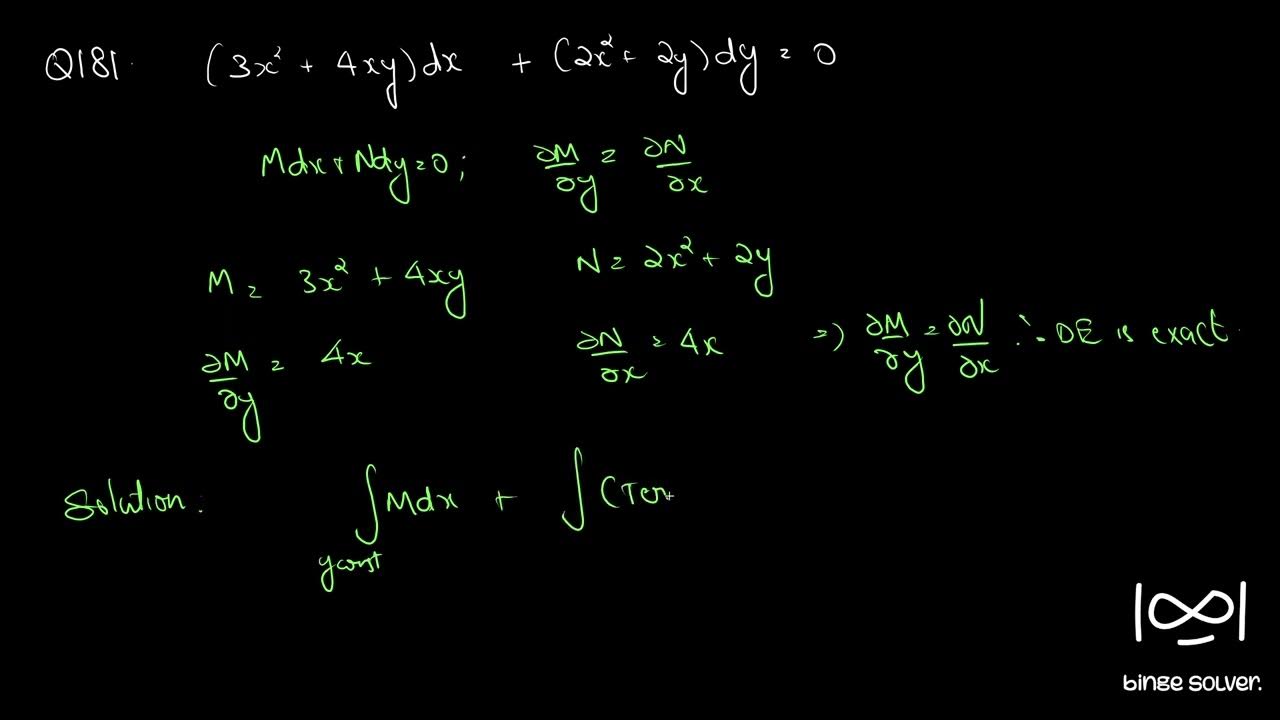 Q181. (3x² + 4xy)dx + (2x² + 2y)dy = 0
Mdx + Ndy = 0; ∂M/∂y = ∂N/∂x
M = 3x² + 4xy N = 2x² + 2y
∂M/∂y = 4x ∂N/∂x = 4x ⇒ ∂M/∂y = ∂N/∂x ∴ DE is exact.
Solution: ∫Mdx + ∫(Ter
y const
binge solver.